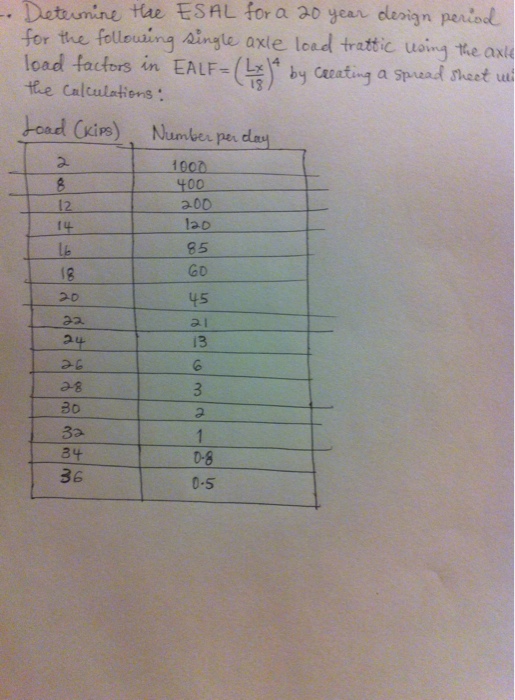 Determine the ESAL for a 20 year design period
for the following single axle load traffic using the axle
load factors in EALF = (Lx/18)^4 by creating a spread sheet
the calculations:
Load (kips) Number per day
2 1000
8 400
12 200
14 120
16 85
18 60
20 45
22 21
24 13
26 6
28 3
30 2
32 1
34 0.8
36 0.5